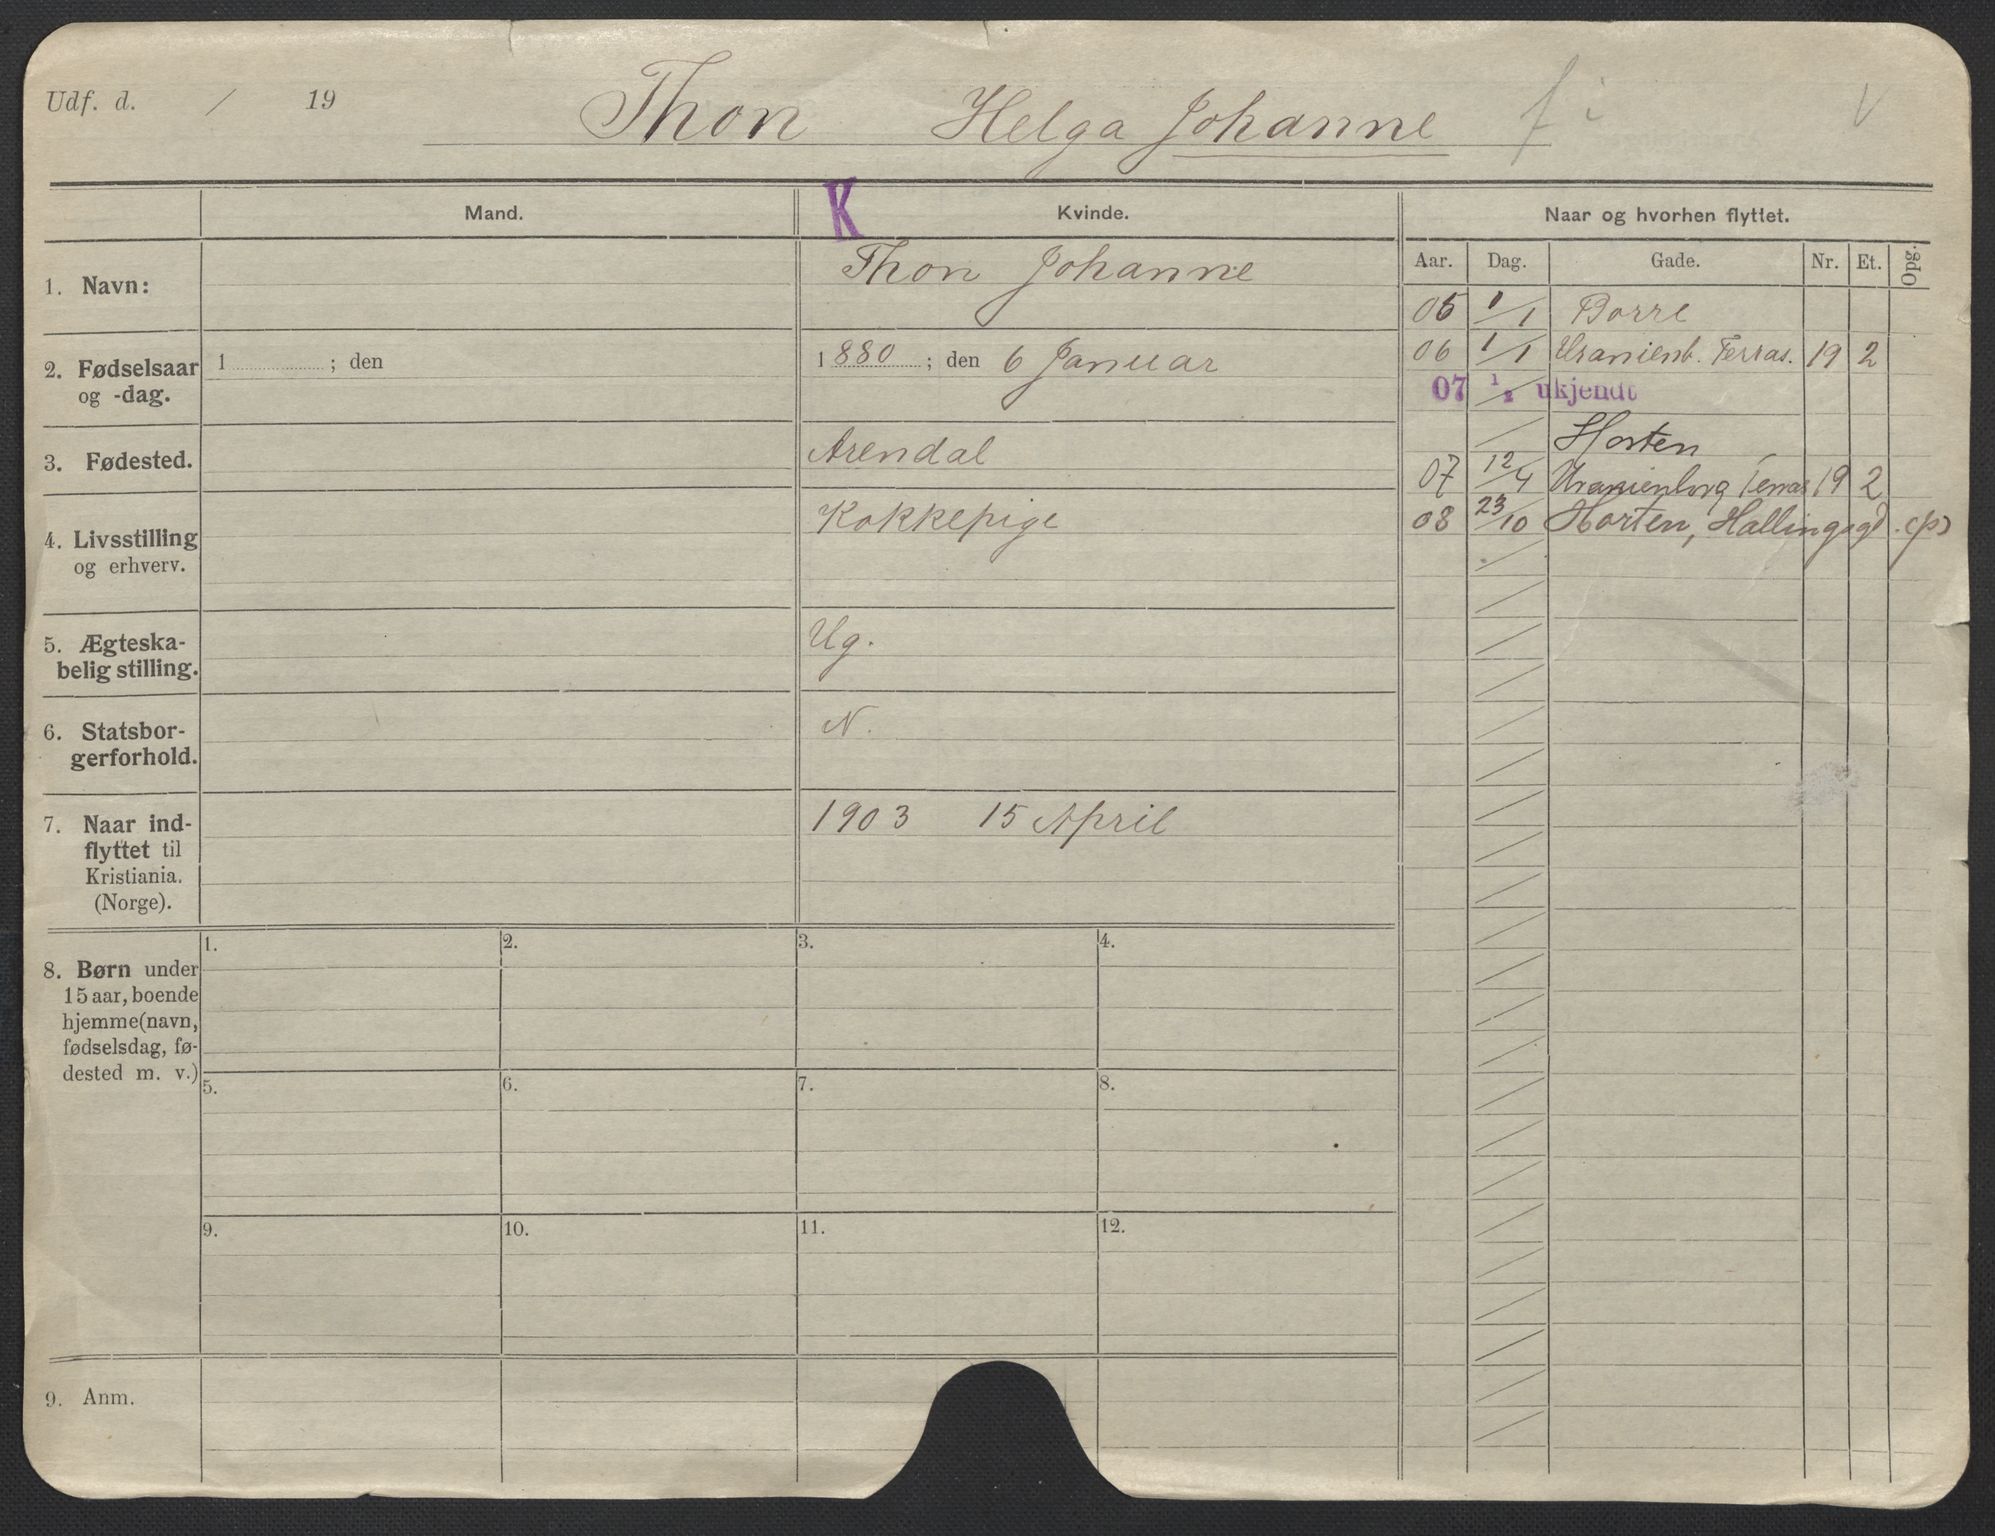 Udf. d. / 19 Thon Helga Johanne
K
Mand. Kvinde. Naar og hvorhen flyttet.
Aar. Dag. Gade. Nr. Et. Opg.
1. Navn: Thon Johanne
2. Fødselsaar og -dag. 1 ; den
1880 ; den 6 Januar
3. Fødested. Arendal
4. Livsstilling og erhverv. Kokkepige
5. Ægteska-
belig stilling. Ug.
6. Statsbor-
gerforhold. N.
7. Naar ind-
flyttet til
Kristiania.
(Norge).
1903 15 April
05 1/1 Borre
06 1/1 Uranienb. Terras. 19 2
07 1/2 ukjendt
Horten
07 12/4 Uranienborg Terras 19 2
08 23/10 Horten, Hallingsgd. (p)
8. Børn under
15 aar, boende
hjemme (navn,
fødselsdag, fø-
dested m. v.)
1. 2. 3. 4.
5. 6. 7. 8.
9. 10. 11. 12.
9. Anm.